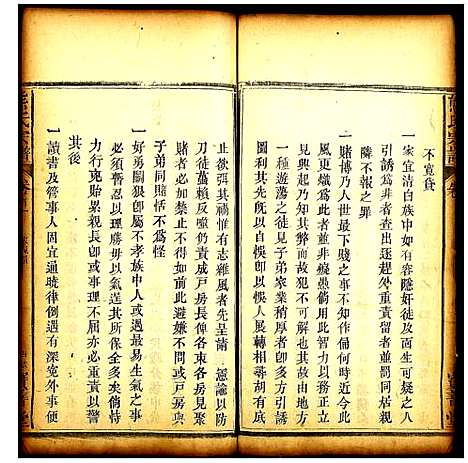 不寬貸
一家宜清白族中如有容隱奸徒及面生可疑之人
引誘爲非者查出逐趕外責罰房者並罰同居親
隣不報之罪
一賭博乃人世最下賤之事不知作俑何時近今此
風更熾爲此者並非癡愚倘用此智力以務正立
見興起乃知其弊而故犯不可解也其故有二有
一種遊蕩之徒見子弟家業稍厚者卽多方引誘
其先所以自悞卽以悞人展轉相尋胡有底
止欲弭其禍惟有志維風者先呈請 憲諭以防
刀徒藉賴反噬仍責成戶房長俾各束各房見聚
賭者必加禁止不得以此避嫌不問或戶房與
子弟同賭恬不爲怪
一好勇鬬狠卽屬不孝族中人或遇最易生氣之事
皆當忍之又忍以理勝毋以氣逞其所保全多矣倘恃
力行兇貽累親長卽或事理不屈亦必重責以警
其後
一讀書及管事人固宜通曉律例遇有深寃外事便